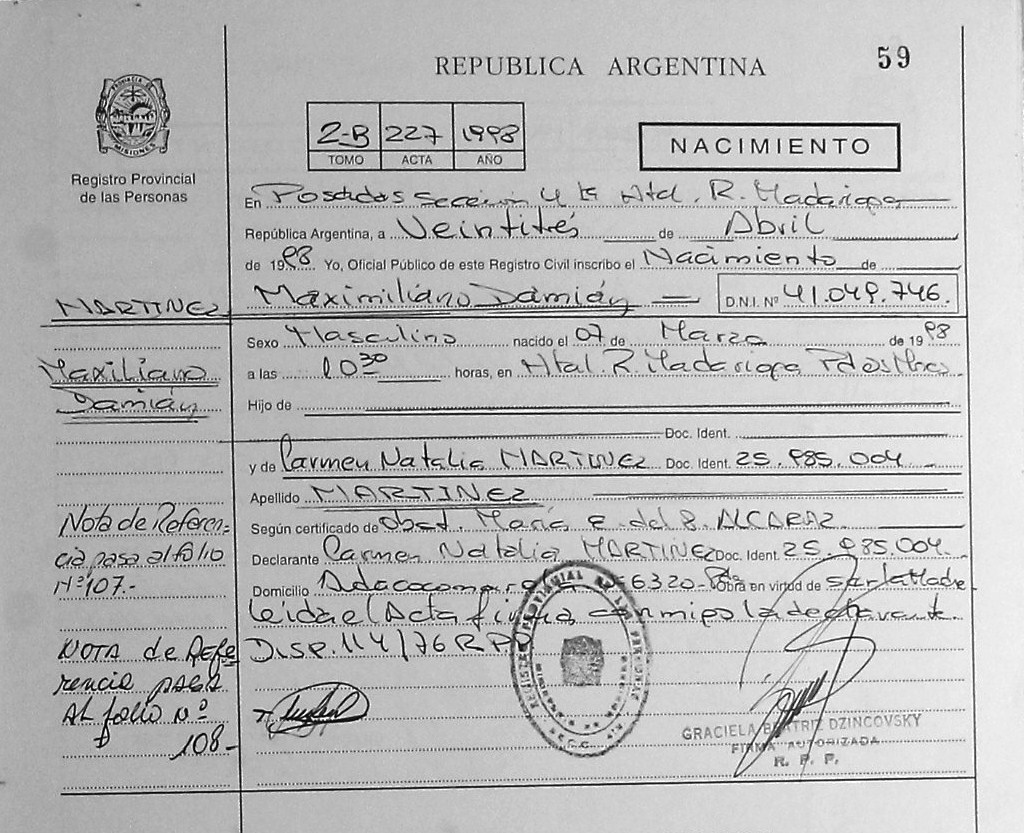 59
REPUBLICA ARGENTINA
PROVINCIA DE MISIONES
Registro Provincial
de las Personas
2-B 227 1998
TOMO ACTA AÑO
NACIMIENTO
En Posadas Sección 4ta Htal. R. Madariaga
República Argentina, a Veintitrés de Abril
de 1998 Yo, Oficial Público de este Registro Civil inscribo el Nacimiento de
MARTINEZ
Maximiliano Damián D.N.I. Nº 41.049.746.
Sexo Masculino nacido el 07 de Marzo de 1998
Maxiliano
Damián
a las 10 30 horas, en Htal. R. Madariaga Pdas Mnes
Hijo de
Doc. Ident.
y de Carmen Natalia MARTINEZ Doc. Ident. 25.985.004
Apellido MARTINEZ
Según certificado de Obst. María E. del S. ALCARAZ
Declarante Carmen Natalia MARTINEZ Doc. Ident. 25.985.004.
Domicilio 6320 Obra en virtud de ser la Madre
Leida el Acta firma conmigo la declarante.
DISP. 114/76 R P
Nota de Referen-
cia pasa al folio
Nº 107.-
NOTA de Refe
rencia pasa
AL folio Nº
108-
GRACIELA BEATRIZ DZINCOVSKY
FIRMA AUTORIZADA
R. P. P.